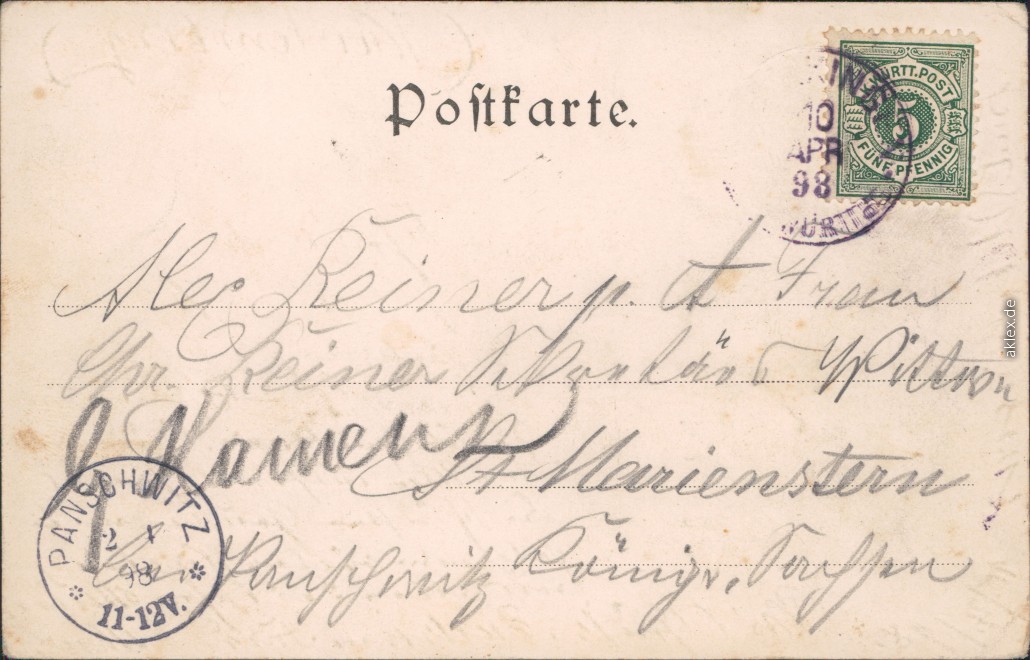 Postkarte.
WÜRTT. POST
5
FÜNF PFENNIG
10
APR
98
Keiner p. A Frau
Keiner Sekretärs Wittwe
b/Kamenz
St Marienstern
Panschwitz Königr. Sachsen
PANSCHWITZ
98
11-12V.
aklex.de